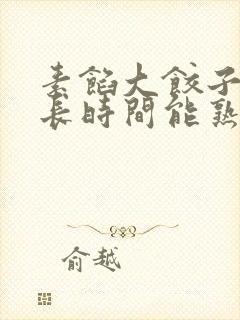 素餡大餃子
長時間能熟
俞越